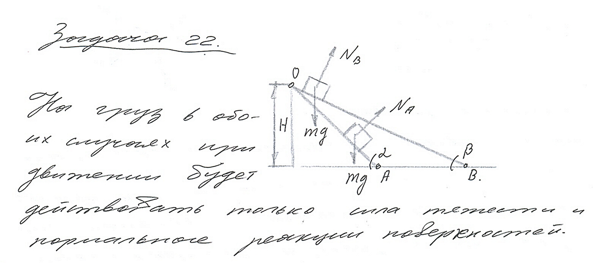 Задача 22.
O
N_B
N_A
На груз в обо-
их случаях при
движении будет
H
mg
mg
α
A
β
B.
действовать только сила тяжести и
нормальное реакции поверхностей.